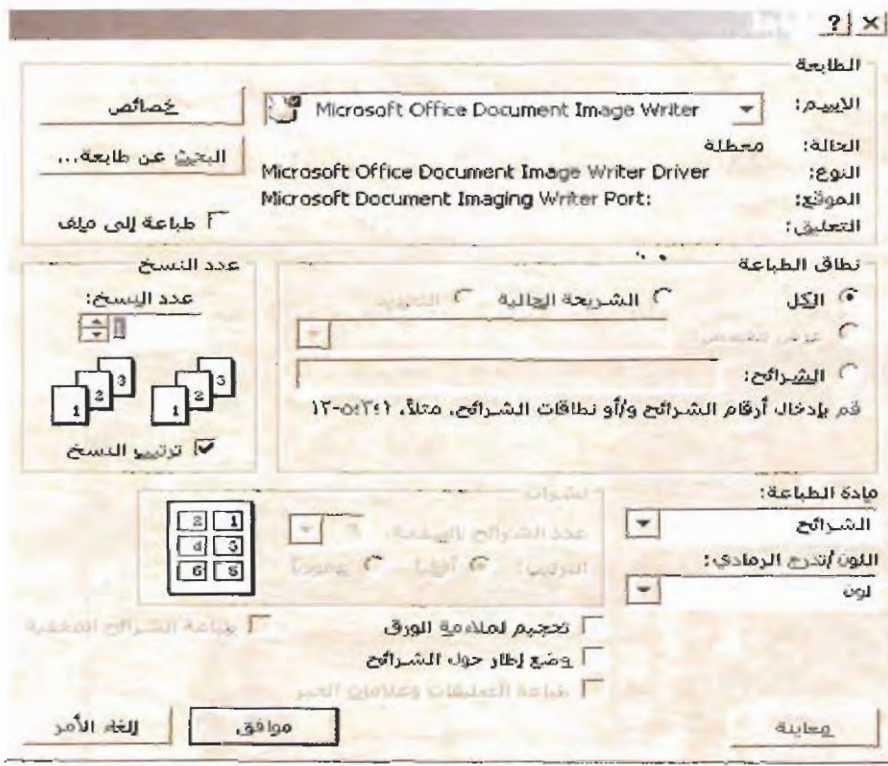 الطابعة
الاسم: Microsoft Office Document Image Writer خصائص
الحالة: معطلة البحث عن طابعة...
النوع: Microsoft Office Document Image Writer Driver
الموقع: Microsoft Document Imaging Writer Port:
التعليق: طباعة إلى ملف
نطاق الطباعة
الكل الشريحة الحالية التحديد
عرض مخصص:
الشرائح:
قم بإدخال أرقام الشرائح و/أو نطاقات الشرائح. مثلاً، ١؛٣؛٥-١٢
عدد النسخ
عدد النسخ:
1
1 2 3 1 2 3
ترتيب النسخ
مادة الطباعة:
الشرائح
اللون/تدرج الرمادي:
لون
نشرات
عدد الشرائح بالصفحة:
الترتيب: أفقياً عمودياً
2 1
4 3
6 5
تحجيم لملاءمة الورق طباعة الشرائح المخفية
وضع إطار حول الشرائح
طباعة التعليقات وعلامات الحبر
معاينة موافق إلغاء الأمر